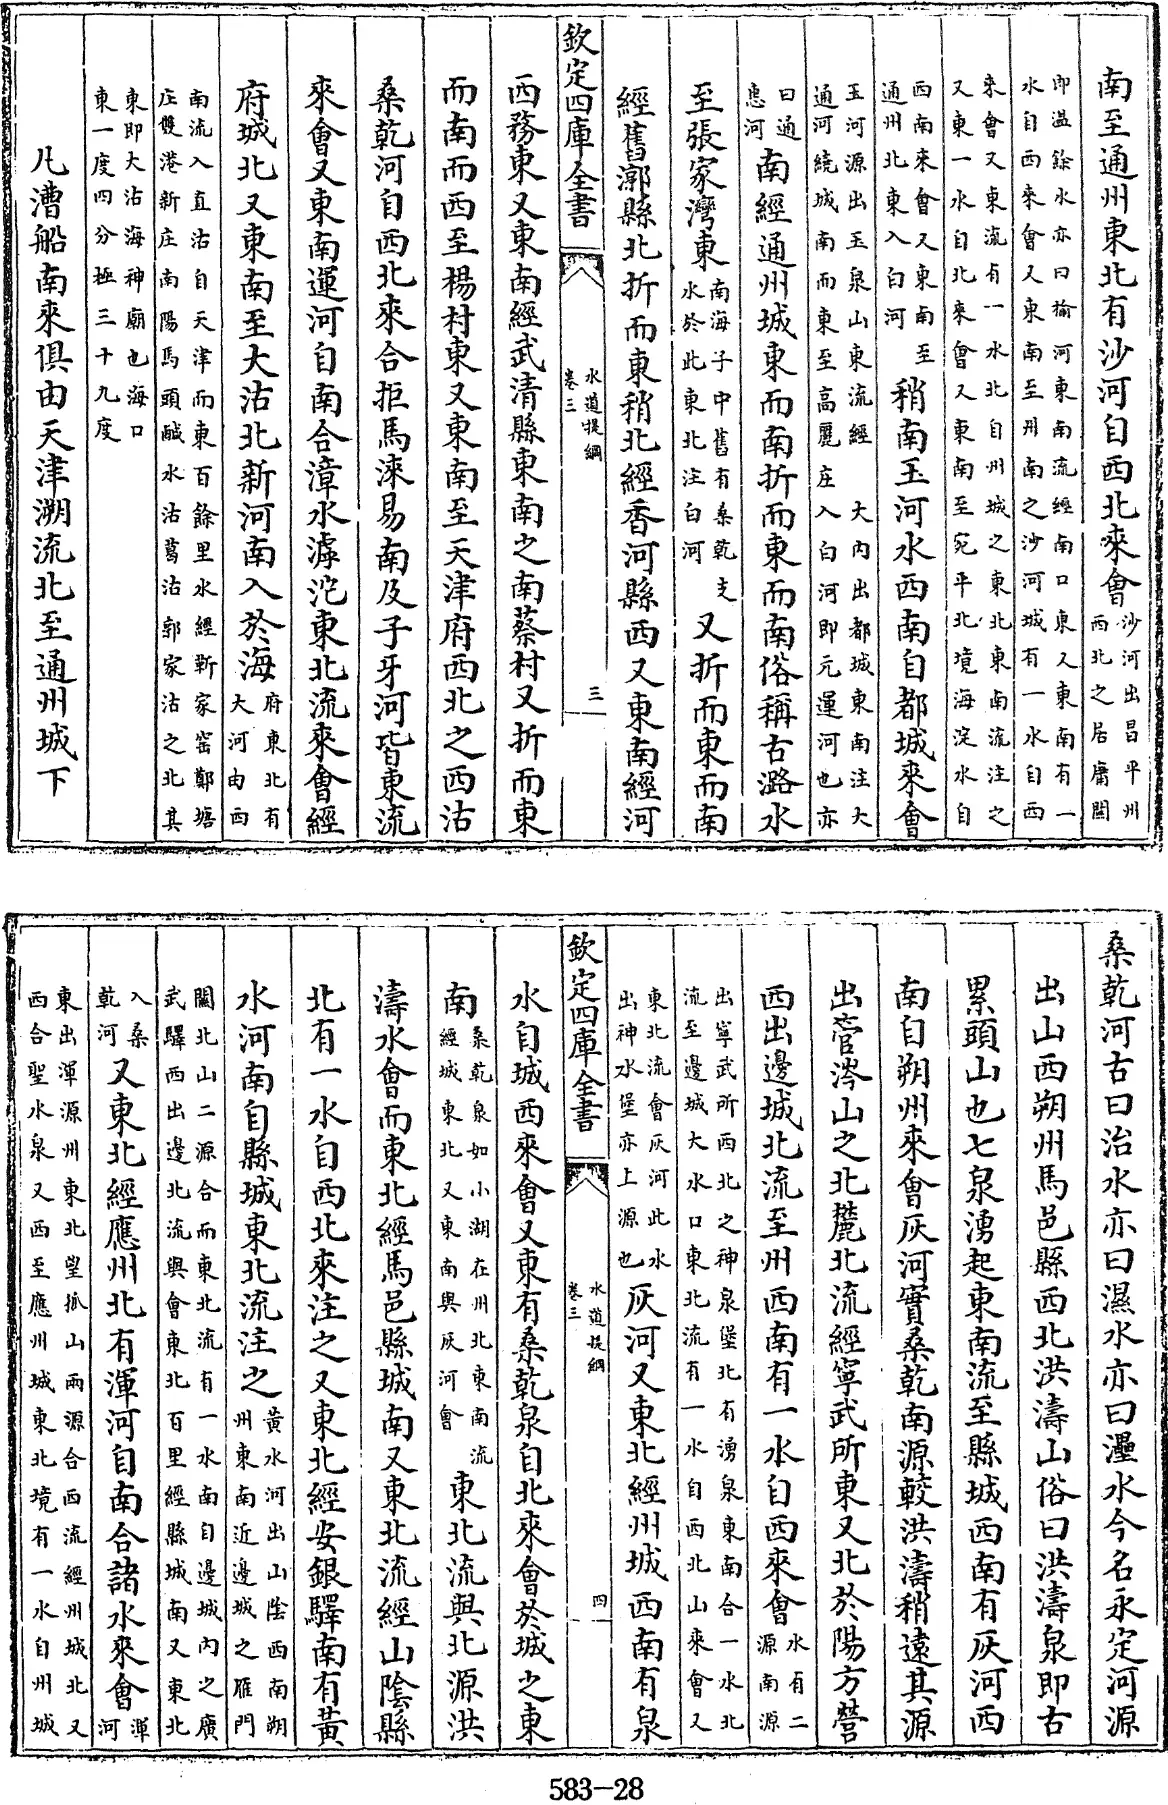 南至通州東北有沙河自西北來會沙河出昌平州西北之居庸關
即溫餘水亦曰榆河東南流經南口東又東南有一水自西來會又東南至州南之沙河城有一水自西
來會又東流有一水北自州城之東北東南流注之又東一水自北來會又東南至宛平北境海淀水自
西南來會又東南至通州北東入白河稍南玉河水西南自都城來會
玉河源出玉泉山東流經大內出都城東南注大通河繞城南而東至高麗庄入白河即元運河也亦
曰通惠河南經通州城東而南折而東而南俗稱古潞水
至張家灣東南海子中舊有桑乾支水於此東北注白河又折而東而南
經舊漷縣北折而東稍北經香河縣西又東南經河
欽定四庫全書
水道提綱
卷三
三
西務東又東南經武清縣東南之南蔡村又折而東
而南而西至楊村東又東南至天津府西北之西沽
桑乾河自西北來合拒馬淶易南及子牙河皆東流
來會又東南運河自南合漳水滹沱東北流來會經
府城北又東南至大沽北新河南入於海府東北有大河由西
南流入直沽自天津而東百餘里水經靳家窑鄭塘庄雙港新庄南陽馬頭鹹水沽葛沽郭家沽之北其
東即大沽海神廟也海口東一度四分極三十九度
凡漕船南來俱由天津溯流北至通州城下
桑乾河古曰治水亦曰濕水亦曰灅水今名永定河源
出山西朔州馬邑縣西北洪濤山俗曰洪濤泉即古
累頭山也七泉湧起東南流至縣城西南有灰河西
南自朔州來會灰河實桑乾南源較洪濤稍遠其源
出管涔山之北麓北流經寧武所東又北於陽方營
西出邊城北流至州西南有一水自西來會水有二源南源
出寧武所西北之神泉堡北有湧泉東南合一水北流至邊城大水口東北流有一水自西北山來會又
東北流會灰河此水出神水堡亦上源也灰河又東北經州城西南有泉
欽定四庫全書
水道提綱
卷三
四
水自城西來會又東有桑乾泉自北來會於城之東
南桑乾泉如小湖在州北東南流經城東北又東南與灰河會東北流與北源洪
濤水會而東北經馬邑縣城南又東北流經山陰縣
北有一水自西北來注之又東北經安銀驛南有黃
水河南自縣城東北流注之黃水河出山陰西南朔州東南近邊城之雁門
關北山二源合而東北流有一水南自邊城內之廣武驛西出邊北流與會東北百里經縣城南又東北
入桑乾河又東北經應州北有渾河自南合諸水來會渾河
東出渾源州東北望狐山兩源合西流經州城北又西合聖水泉又西至應州城東北境有一水自州城
583-28